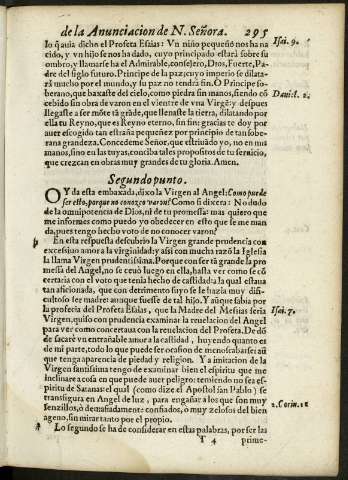 de la Anunciacion de N. Señora. 295
lo q̃ auia dicho el Profeta Esaias: Vn niño pequeño nos ha na
cido, y vn hijo se nos ha dado, cuyo principado estará sobre su
ombro, y llamarse ha el Admirable, consejero, Dios, Fuerte, Pa
dre del siglo futuro. Principe de la paz; cuyo imperio se dilata-
rá mucho por el mundo, y su paz no tendrá fin. O Principe so-
berano, que baxaste del cielo, como piedra sin manos, siendo cõ
cebido sin obra de varon en el vientre de vna Virgẽ: y despues
llegaste a ser mõte tã grãde, que llenaste la tierra, dilatando por
ella tu Reyno, que es Reyno eterno, sin fin: gracias te doy por
auer escogido tan estraña pequeñez por principio de tan sobe-
rana grandeza. Concedeme Señor, que estriuãdo yo, no en mis
manos, sino en las tuyas, conciba tales propositos de tu seruicio,
que crezcan en obras muy grandes de tu gloria. Amen.
Isai. 9.
Daniel. 2.
Segundo punto.
OYda esta embaxada, dixo la Virgen al Angel: Como puede
ser esto, porque no conozco varon? Como si dixera: No dudo
de la omnipotencia de Dios, ni de tu promessa: mas quiero que
me informes como puedo yo obedecer en esto que se me man-
da, pues tengo hecho voto de no conocer varon?
En esta respuesta descubrio la Virgen grande prudencia con
excessiuo amor a la virginidad; y assi con mucha razõ la Iglesia
la llama Virgen prudentissima. Porque con ser tã grande la pro
messa del Angel, no se ceuò luego en ella, hasta ver como se cõ
certaria con el voto que tenia hecho de castidad a la qual estaua
tan aficionada, que con detrimento suyo se le hazia muy difi-
cultoso ser madre: aunque fuesse de tal hijo. Y aũque sabia por
la profecia del Profeta Esaias, que la Madre del Mesias seria
Virgen, quiso con prudencia examinar la reuelacion del Angel
para ver como concertaua con la reuelacion del Profeta. De dõ
de sacarè vn entrañable amor a la castidad, huyendo quanto es
de mi parte, todo lo que puede ser ocasion de menoscabarse: aũ
que tenga aparencia de piedad y religion. Y a imitacion de la
Virgen santissima tengo de examinar bien el espiritu que me
inclinare a cosa en que puede auer peligro: temiendo no sea es-
piritu de Satanas: el qual (como dize el Apostol san Pablo) se
transfigura en Angel de luz, para engañar a los que son muy
senzillos, ò demasiadamente confiados, o muy zelosos del bien
ageno, sin mirar tanto por el propio.
Isai. 7.
2. Corin. 11
Lo segundo se ha de considerar en estas palabras, por ser las
T 4 prime-